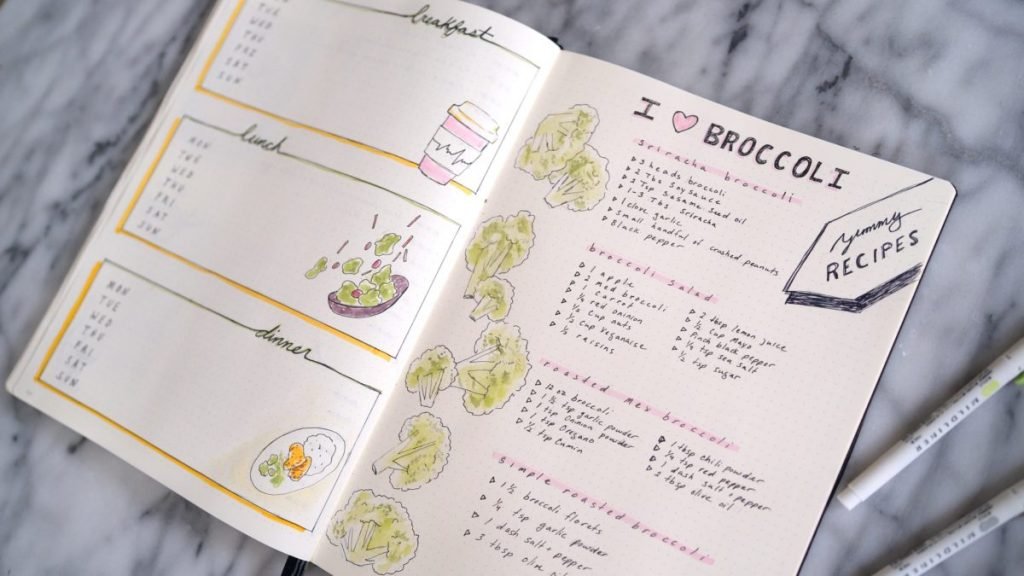 breakfast
TUE
WED
THU
FRI
SAT
SUN
lunch
MON
TUE
WED
THU
FRI
SAT
SUN
dinner
MON
TUE
WED
THU
FRI
SAT
SUN
I BROCCOLI
sriracha broccoli
3 heads broccoli
2 Tbs Soy Sauce
2 Tsp Sesame Seed oil
1-3 Tbs Sriracha
1 clove garlic
Small handful of crushed peanuts
Black pepper
yummy
RECIPES
broccoli salad
1 apple
1 med broccoli
1 carrot
1/4 red onion
1/4 cup nuts
1/2 cup veganaise
1/2 raisins
2 tbsp lemon juice
1/2 cup Mayo
pinch black pepper
1/4 tsp sea salt
1/2 tsp sugar
roasted mex broccoli
12 oz broccoli
1 1/2 tsp garlic powder
1 tsp onion powder
1 tsp oregano
1/2 tsp cumin
1 tsp chili powder
1/4 tsp red pepper
1 dash salt + pepper
2 tbsp olive oil
simple roasted broccoli
1 1/2 broccoli florets
1/4 tsp garlic powder
1 dash salt + pepper
3 tbsp olive oil
MILDLINER